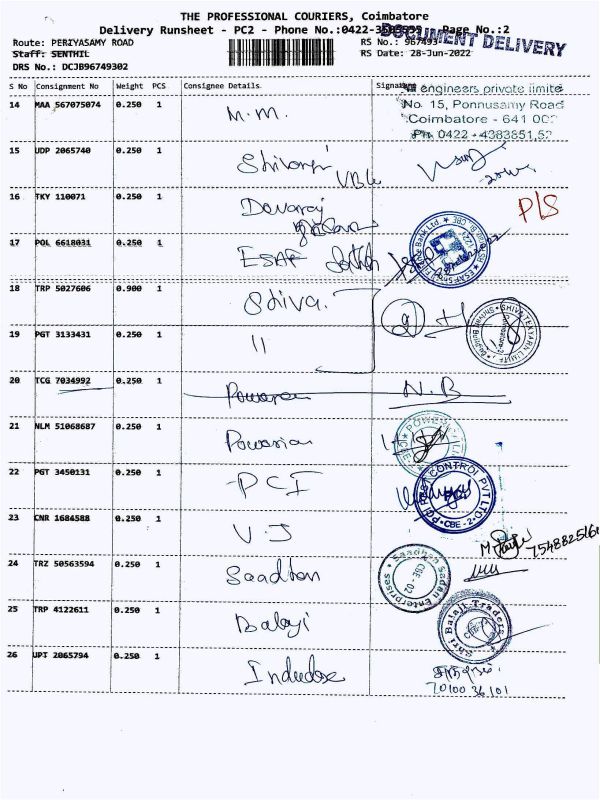 THE PROFESSIONAL COURIERS, Coimbatore
Delivery Runsheet - PC2 - Phone No.:0422- Page No.:2
DOCUMENT DELIVERY
Route: PERIYASAMY ROAD
RS No.: 967493
Staff: SENTHIL
RS Date: 28-Jun-2022
DRS No.: DCJB96749302
S No Consignment No Weight PCS Consignee Details Signature
engineers private limite
14 MAA 567075074 0.250 1 M.M.
No. 15, Ponnusamy Road
Coimbatore - 641 002
Ph. 0422 - 4383851,52
15 UDP 2065740 0.250 1
16 TKY 110071 0.250 1 Devaraj
P/S
17 POL 6618031 0.250 1 ESAF
18 TRP 5027606 0.900 1 Shiva.
19 PGT 3133431 0.250 1 11
20 TCG 7034992 0.250 1 N.B
21 NLM 51068687 0.250 1
22 PGT 3450131 0.250 1 PCI
PCI PEST CONTROL PVT LTD CBE - 2
23 CNR 1684588 0.250 1 V.J
7548825160
24 TRZ 50563594 0.250 1 Saadhan
Saadhan Sadan Enterprises CBE - 02
25 TRP 4122611 0.250 1 Balaji
Shri Balaji Traders
26 UPT 2065794 0.250 1
7010036101